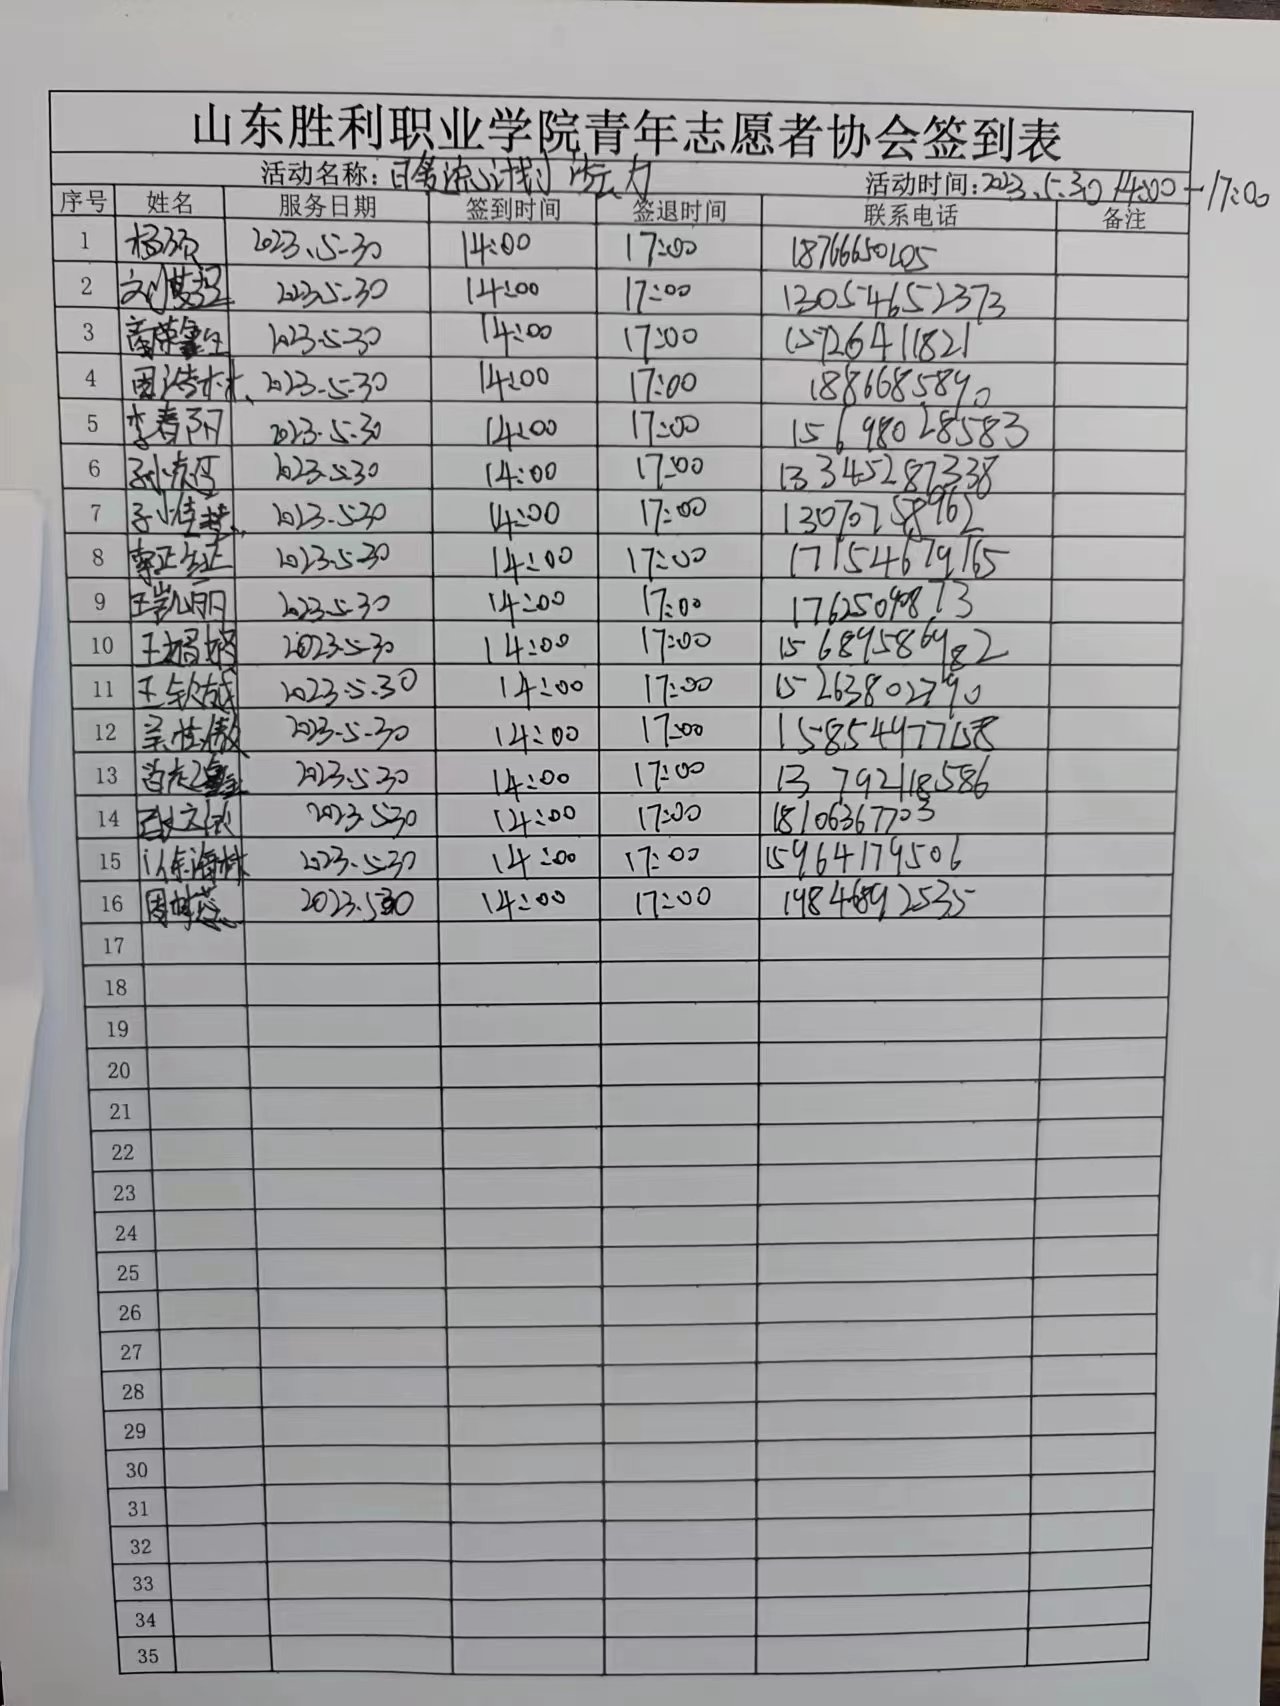 山东胜利职业学院青年志愿者协会签到表
活动名称: 计划 活动时间:2023.5.30 14:00-17:00
序号 姓名 服务日期 签到时间 签退时间 联系电话 备注
1 2023.5-30 14:00 17:00 18766650105
2 2023.5-30 14:00 17:00 13054652373
3 2023.5-30 14:00 17:00 15726411821
4 2023.5-30 14:00 17:00 1886685890
5 李春丽 2023.5.30 14:00 17:00 15698028583
6 2023.5.30 14:00 17:00 13345287338
7 2023.530 14:00 17:00 13070758962
8 2023.5.30 14:00 17:00 17154679165
9 王凯丽 2023.5.30 14:00 17:00 17625090873
10 王娟娟 2023.5.30 14:00 17:00 15689586982
11 王钦越 2023.5.30 14:00 17:00 15263802790
12 2023.5.30 14:00 17:00 15854977158
13 2023.5.30 14:00 17:00 13792118586
14 2023.530 14:00 17:00 18106367703
15 徐海林 2023.5.30 14:00 17:00 15964179506
16 2023.530 14:00 17:00 19846892535
17
18
19
20
21
22
23
24
25
26
27
28
29
30
31
32
33
34
35